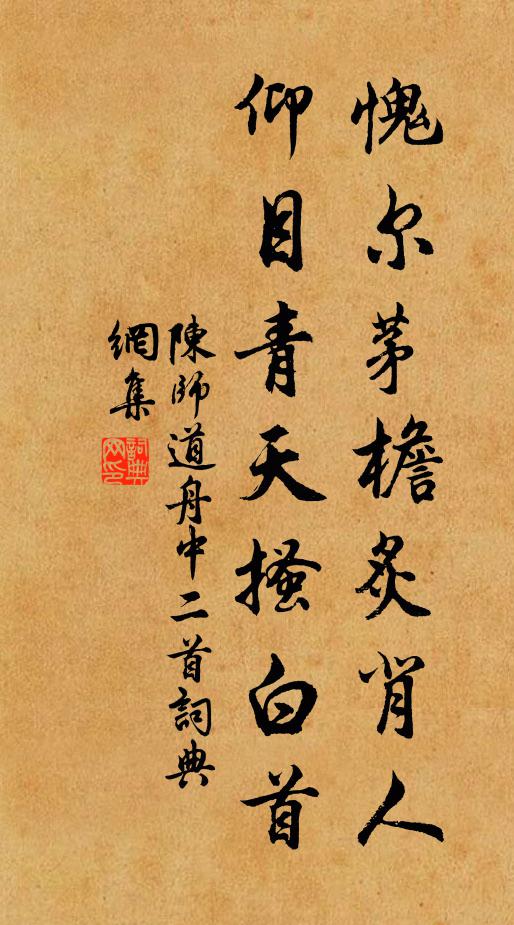 愧尔茅檐炙背人
仰目青天搔白首
陳師道舟中二首詞典
網集
詞典網印